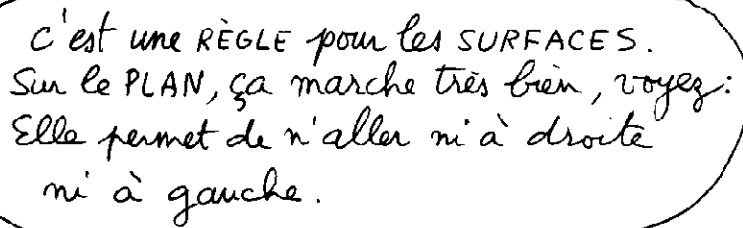 c'est une RÈGLE pour les SURFACES.
Sur le PLAN, ça marche très bien, voyez :
Elle permet de n'aller ni à droite
ni à gauche.